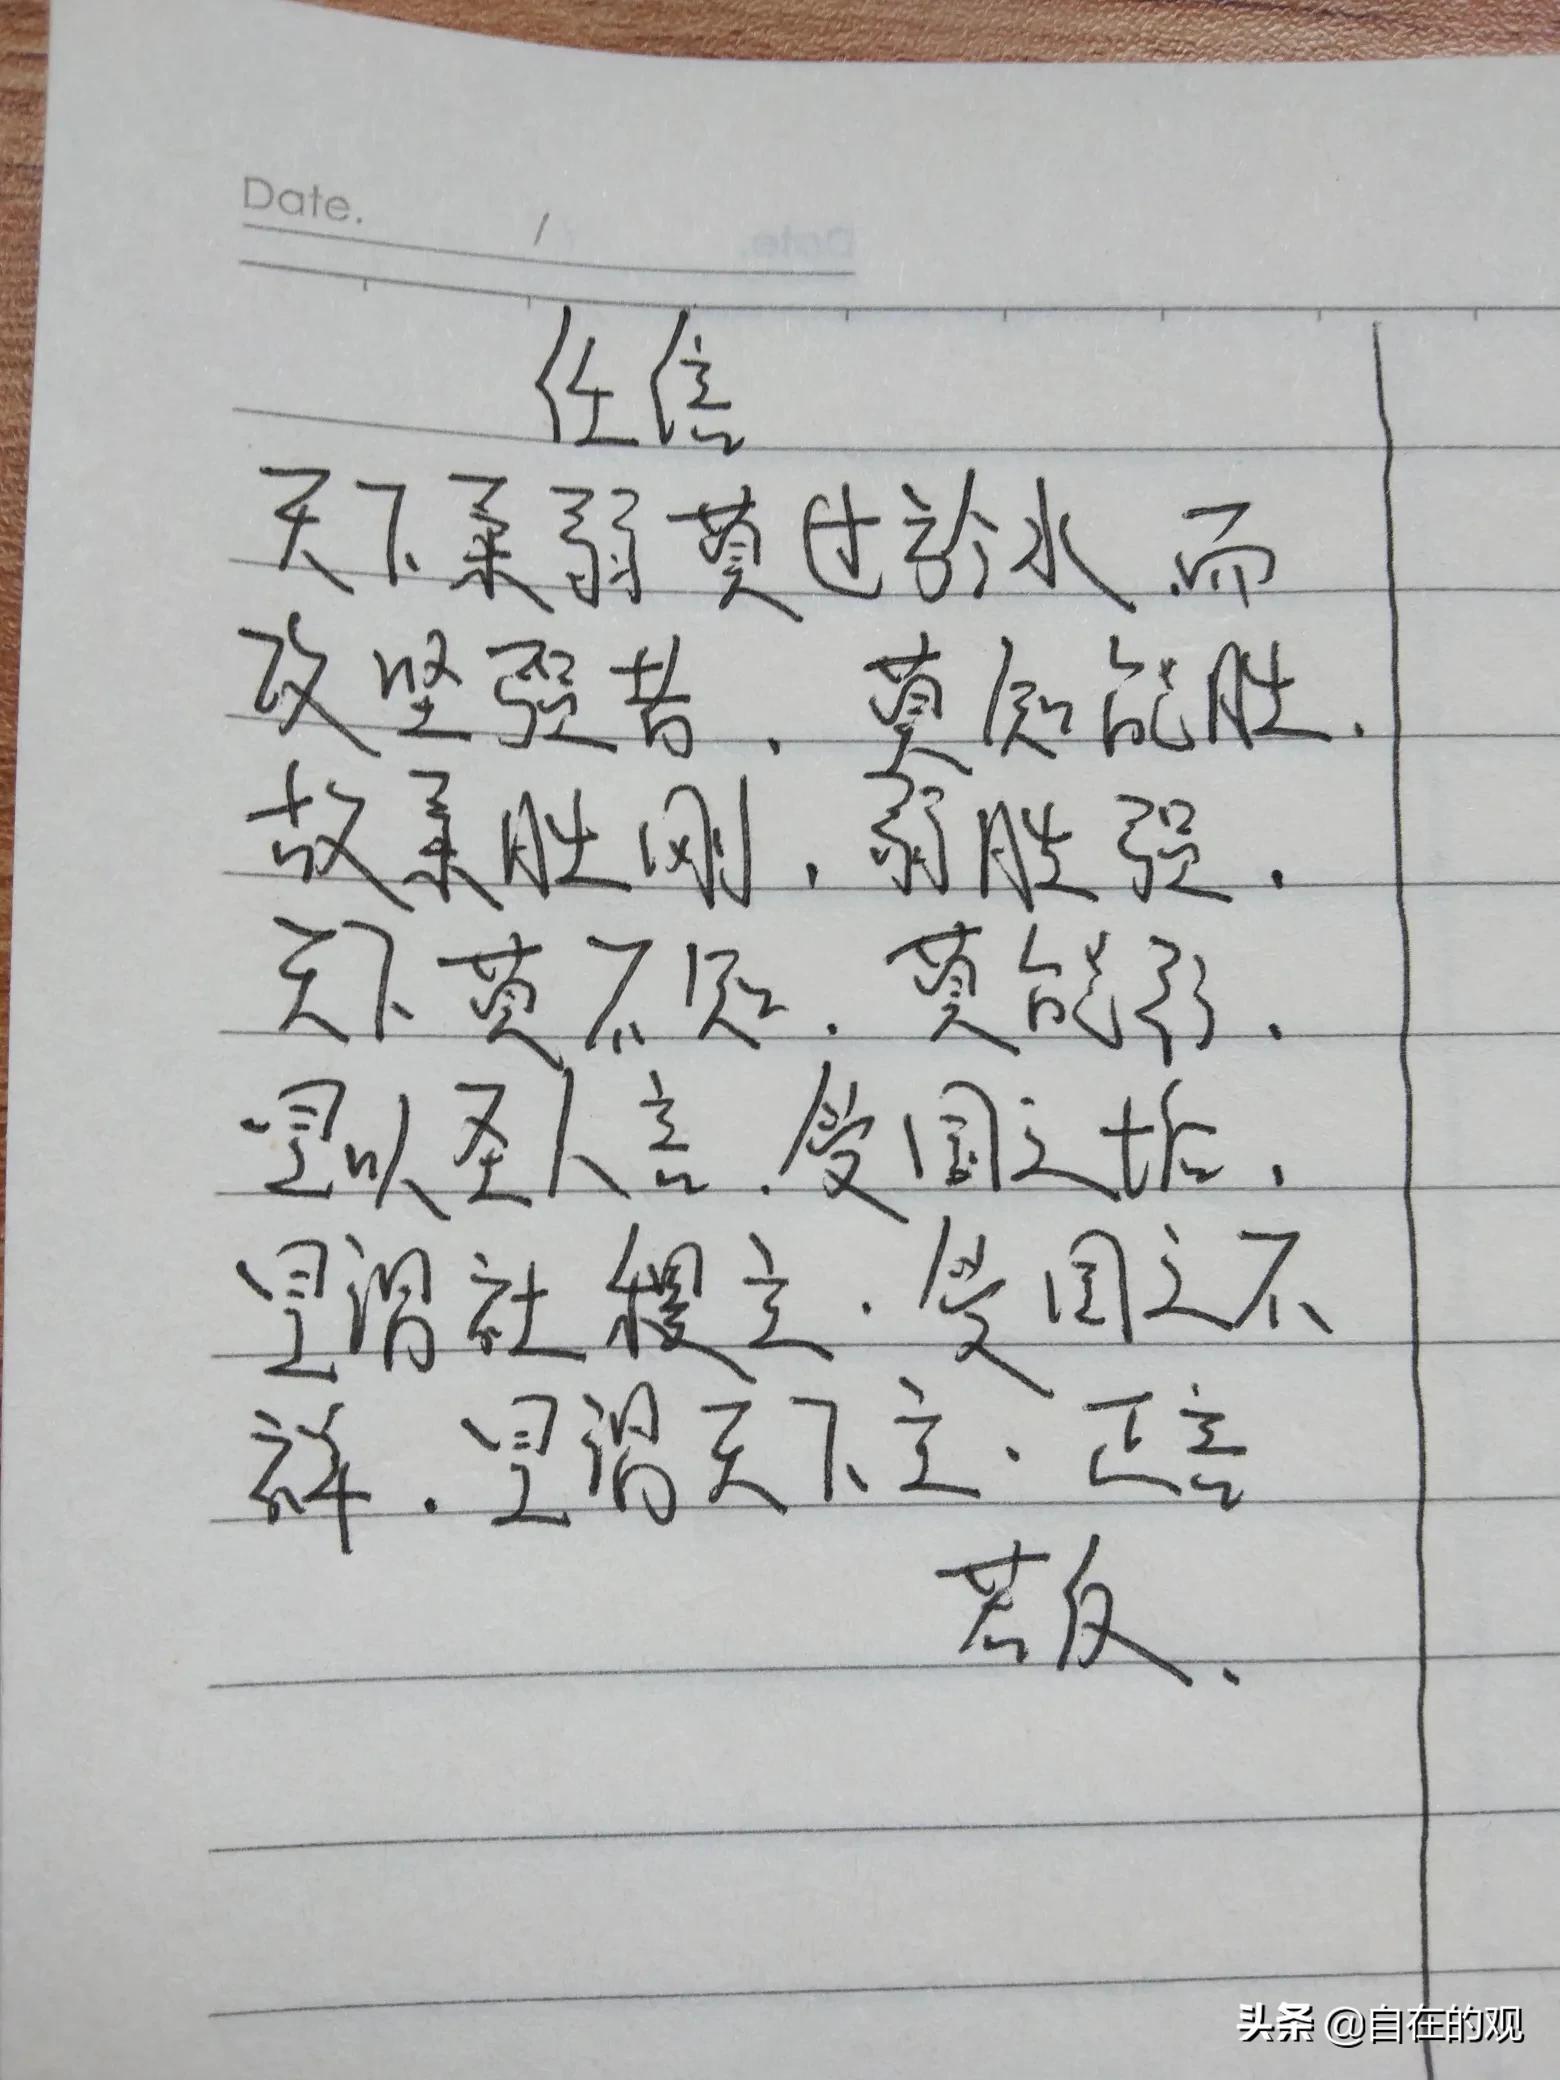 Date. /
任信
天下柔弱莫过於水.而
攻坚强者.莫知能胜.
故柔胜刚.弱胜强.
天下莫不知.莫能行.
是以圣人言.受国之垢.
是谓社稷主.受国之不
祥.是谓天下主.正言
若反.
头条 @自在的观